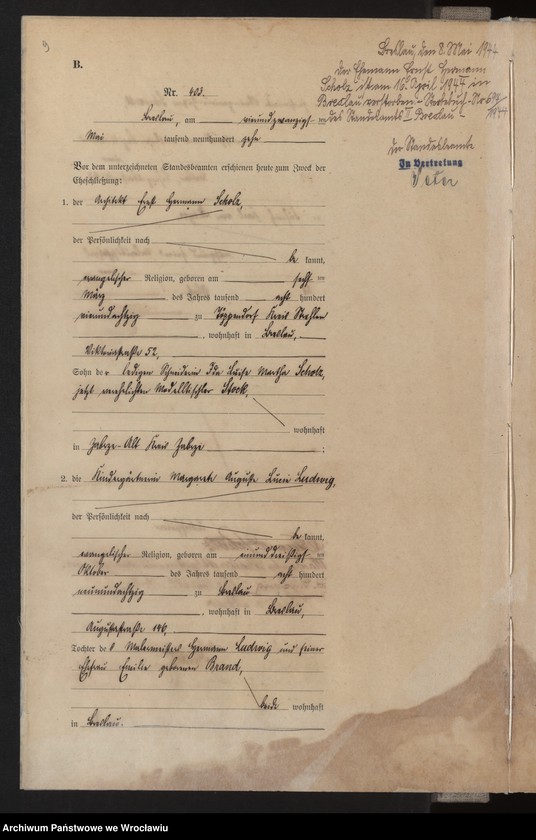 9
Breslau, den 8. Mai 1944
Der Ehemann Ernst Hermann
Scholz ist am 16. April 1944 in
Breslau verstorben - Sterbebuch-Nr 693/1944
des Standesamts II Breslau -
Der Standesbeamte
In Vertretung
B.
Nr. 403.
Breslau, am vierundzwanzigsten
Mai tausend neunhundert zehn
Vor dem unterzeichneten Standesbeamten erschienen heute zum Zweck der
Eheschließung:
1. der Architekt Ernst Hermann Scholz,
der Persönlichkeit nach
be kannt,
evangelischer Religion, geboren am sechsten
März des Jahres tausend acht hundert
vierundachtzig zu Töppendorf Kreis Strehlen
, wohnhaft in Breslau,
Viktoriastraße 52,
Sohn der ledigen Schneiderin Ida Luise Martha Scholz,
jetzt verehelichten Modelltischler Stock,
wohnhaft
in Zabrze-Alt Kreis Zabrze ;
2. die Kindergärtnerin Margarete Auguste Lucie Ludwig,
der Persönlichkeit nach
be kannt,
evangelischer Religion, geboren am einunddreißigsten
Oktober des Jahres tausend acht hundert
neunundachtzig zu Breslau
, wohnhaft in Breslau,
Augustastraße 146,
Tochter des Malermeisters Hermann Ludwig und seiner
Ehefrau Emilie geborenen Brand,
beide wohnhaft
in Breslau.
Archiwum Państwowe we Wrocławiu